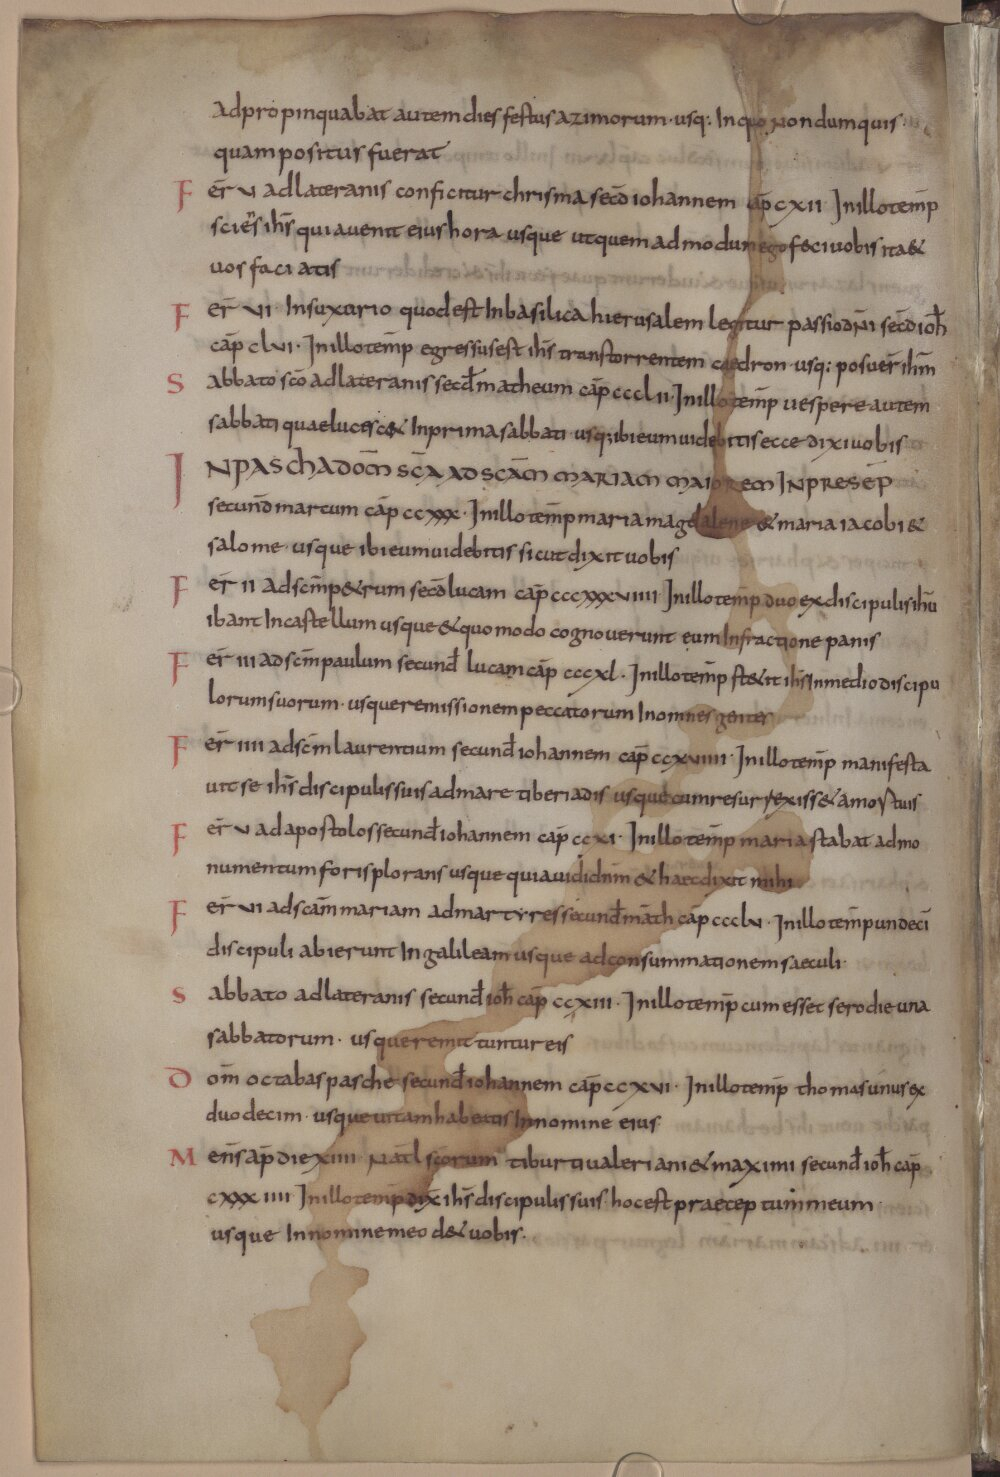 adpropinquabat autem dies festus azimorum · usq: In quo nondum quis
quam positus fuerat
Fer̄ v ad lateranis conficitur chrisma sec̄d iohannem cāp cxii Inillotem̄p
sciens ih̄s quia venit eius hora usque ut quem ad modum ego feci uobis ita &
uos faciatis
Fer̄ vi · Insuxurio quod est Inbasilica hierusalem legitur passio dn̄i sec̄d ioh̄
cāp clvi · Inillotem̄p egressus est ih̄s trans torrentem caedron · usq: posuer̄ ih̄m
Sabbato sc̄o ad lateranis secd̄ matheum cāp ccclii · Inillotem̄p uespere autem
sabbati quae lucesc& Inprima sabbati · usq: ibi eum uidebitis ecce dixi uobis
INPASCHA DOM̄ SC̄A AD SCAM̄ MARIAM MAIOREM INPRESĒP
secund̄ marcum cāp ccxxx · Inillotem̄p maria magdalene & maria iacobi &
salome · usque ibi eum uidebitis sicut dixit uobis
Fer̄ ii ad scm̄ p&rum sec̄d lucam cāp cccxxxviiii Inillotem̄p duo ex discipulis ih̄u
ibant Incastellum usque & quomodo cognouerunt eum Infractione panis
Fer̄ iii ad scm̄ paulum secund̄ lucam cāp cccxl · Inillotem̄p st&it ih̄s Inmedio discipu
lorum suorum · usque remissionem peccatorum Inomnes gentes
Fer̄ iiii ad scm̄ laurentium secund̄ iohannem cāp ccxviiii · Inillotem̄p manifesta
uit se ih̄s discipulis suis ad mare tiberiadis usque cum resurrexiss& a mortuis
Fer̄ v ad apostolos secund̄ iohannem cāp ccxi · Inillotem̄p maria stabat ad mo
numentum foris plorans usque quia uidi dn̄m & haec dixit mihi
Fer̄ vi ad scam̄ mariam ad martyres secund̄ māth cāp ccclv · Inillotem̄p undecī
discipuli abierunt Ingalileam usque ad consummationem saeculi ·
Sabbato ad lateranis secund̄ ioh̄ cāp ccxiii · Inillotem̄p cum esset sero die una
sabbatorum · usque remittuntur eis
Dom̄ octabas pasche secund̄ iohannem cāp ccxvi · Inillotem̄p thomas unus ex
duodecim · usque uitam habeatis Innomine eius
Mens̄ ap̄ die xiiii Nat̄l scorum tiburti valeriani & maximi secund̄ ioh̄ cāp
cxxxiiii Inillotem̄p dix̄ ih̄s discipulis suis hoc est praeceptum meum
usque Innomine meo d& uobis.